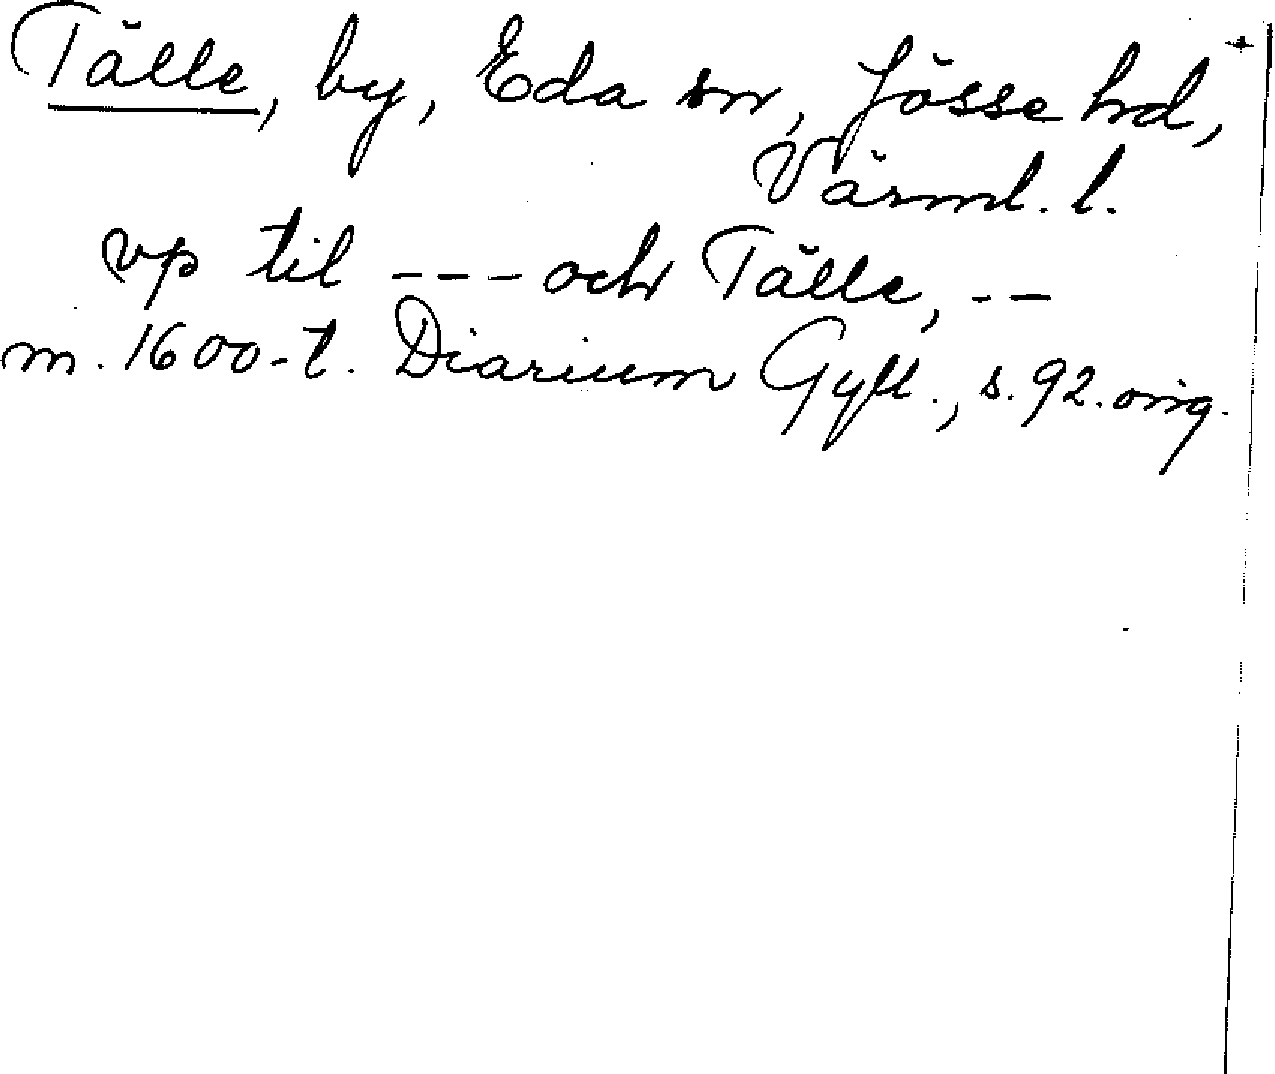 Tälle, by, Eda sn, Jösse hd,
Värml. l.
vp til --- och Tälle, --
m. 1600-t. Diarium Gyll., s. 92. orig.